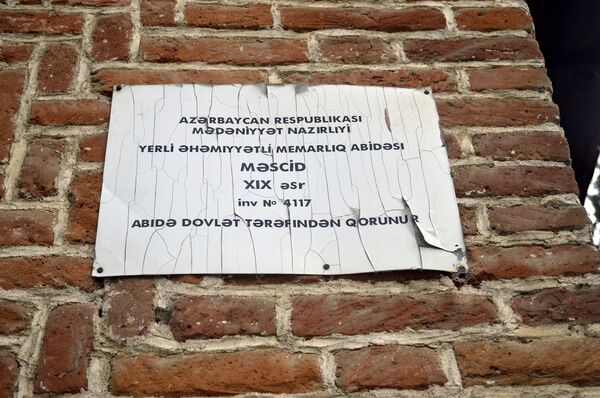 AZƏRBAYCAN RESPUBLIKASI
MƏDƏNİYYƏT NAZIRLIYI
YERLİ ƏHƏMIYYƏTLİ MEMARLIQ ABİDƏSI
MƏSCİD
XIX əsr
inv № 4117
ABIDƏ DOVLƏT TƏRƏFINDƏN QORUNUR